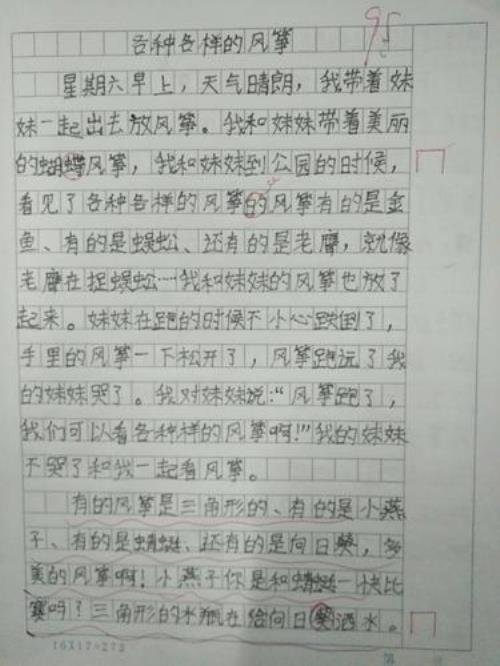 各种各样的风筝
95
星期六早上，天气晴朗，我带着妹
妹一起出去放风筝。我和妹妹带着美丽
的蝴蝶风筝，我和妹妹到公园的时候，
看见了各种各样的风筝的风筝有的是金
鱼、有的是蜈蚣、还有的是老鹰，就像
老鹰在捉蜈蚣…我和妹妹的风筝也放了
起来。妹妹在跑的时候不小心跌倒了，
手里的风筝一下松开了，风筝跑远了我
的妹妹哭了。我对妹妹说：“风筝跑了，
我们可以看各种样的风筝啊！”我的妹妹
不哭了和我一起看风筝。
有的风筝是三角形的、有的是小燕
子、有的是蜻蜓、还有的是向日葵，多
美的风筝啊！小燕子你是和蜻蜓一快比
赛吗？三角形的水瓶在给向日葵洒水。
16X17=272
第